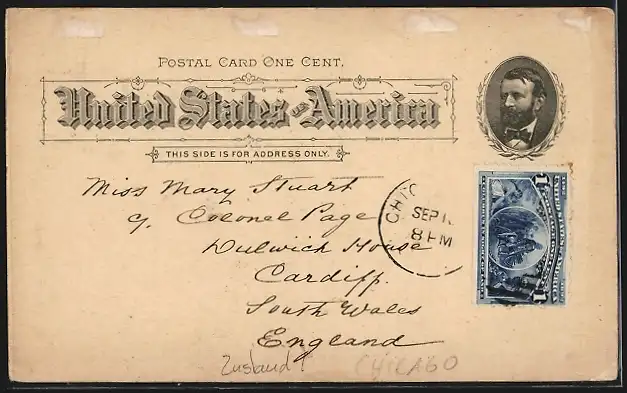 POSTAL CARD ONE CENT.
United States of America
THIS SIDE IS FOR ADDRESS ONLY.
Miss Mary Stuart
c/ Colonel Page
Dulwich House
Cardiff
South Wales
England
CHIC
SEP 1
8 PM
1 1
CHICAGO